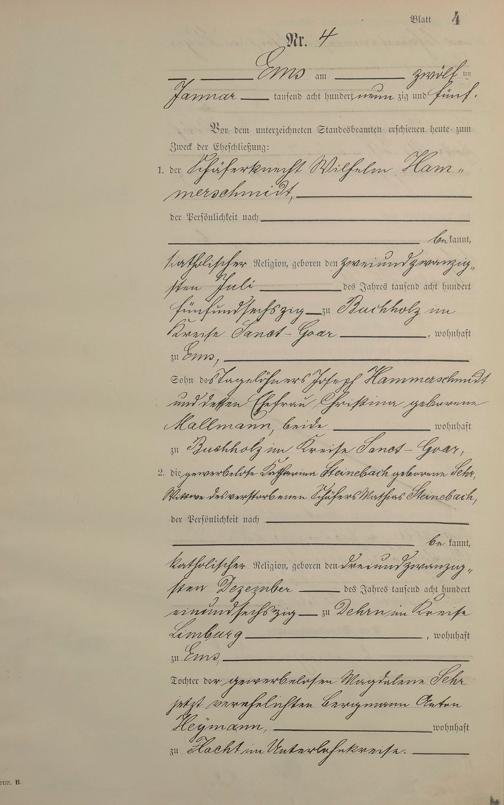 Blatt 4
Nr. 4
Ems am zwölften
Januar tausend acht hundert neunzig und fünf.
Vor dem unterzeichneten Standesbeamten erschienen heute zum
Zweck der Eheschließung:
1. der Schäferknecht Wilhelm Ham-
merschmidt,
der Persönlichkeit nach
bekannt,
katholischer Religion, geboren den zweiundzwanzig-
sten Juli des Jahres tausend acht hundert
fünfundsechszig zu Buchholz im
Kreise Sanct-Goar, wohnhaft
zu Ems,
Sohn des Tagelöhners Joseph Hammerschmidt
und dessen Ehefrau Christina geborene
Mallmann, beide wohnhaft
zu Buchholz im Kreise Sanct-Goar,
2. die gewerbelose Katharina Steinebach geborene Sehr,
Wittwe des verstorbenen Schäfers Mathias Steinebach,
der Persönlichkeit nach
bekannt,
katholischer Religion, geboren den dreiundzwanzig-
sten Dezember des Jahres tausend acht hundert
einundsechszig zu Dehrn im Kreise
Limburg, wohnhaft
zu Ems,
Tochter der gewerbelosen Magdalene Sehr
jetzt verehelichten Bergmann Anton
Heymann, wohnhaft
zu im Unterlahnkreise.
B.